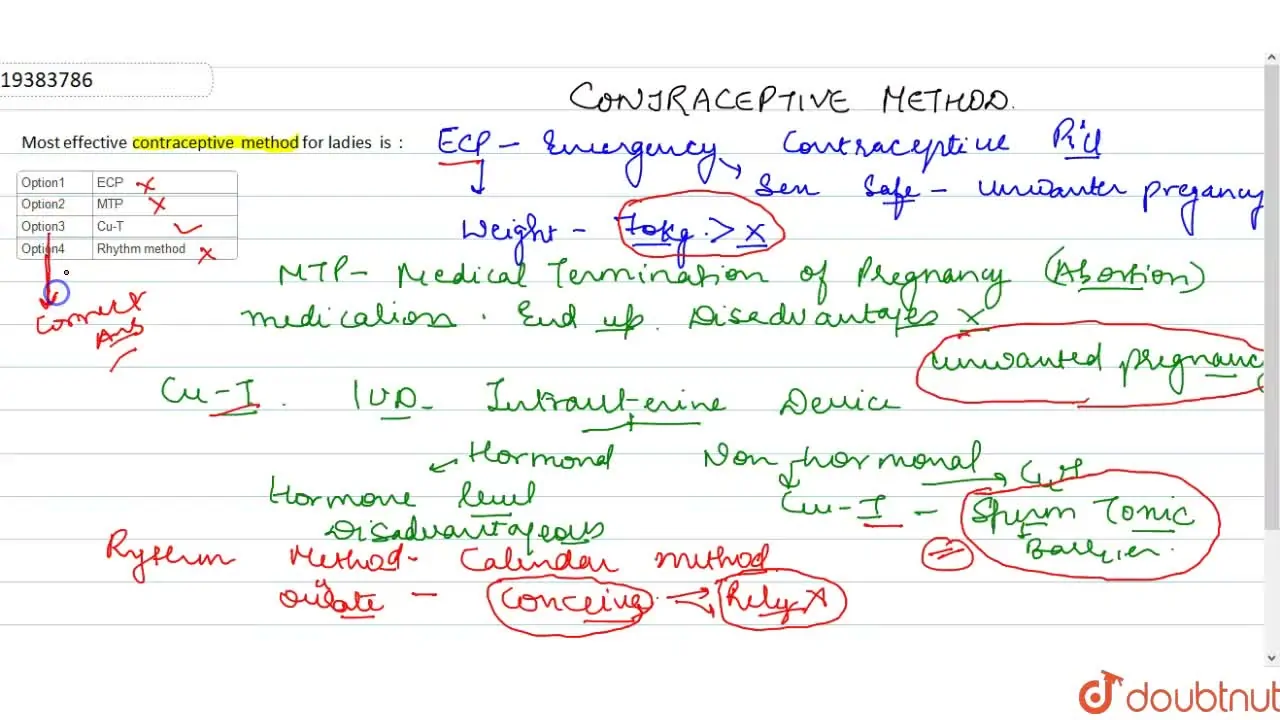 19383786
CONTRACEPTIVE METHOD.
Most effective contraceptive method for ladies is :
Option1 ECP x
Option2 MTP x
Option3 Cu-T ✓
Option4 Rhythm method x
ECP - Emergency Contraceptive Pill
Safe - unwanted pregnancy
Weight - 70kg > x
MTP - Medical Termination of Pregnancy (Abortion)
medications. End up. Disadvantages x
unwanted pregnanc
Correct
Ans
Cu-T. IUD- Intrauterine Device
Hormonal Non-hormonal → CuT
Hormone level Cu-T - Sperm Tonic
Disadvantageous Barrier.
Rythm Method- Calendar method
- Conceiving. → Rely X
doubtnut